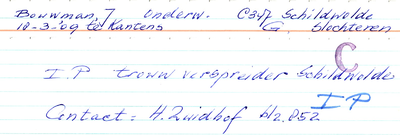 Bouwman, J Onderw. C357 Schildwolde
18-3-'09 te Kantens G. Slochteren
C
I.P trouw verspreider Schildwolde
I P
Contact = H. Zuidhof blz. 852